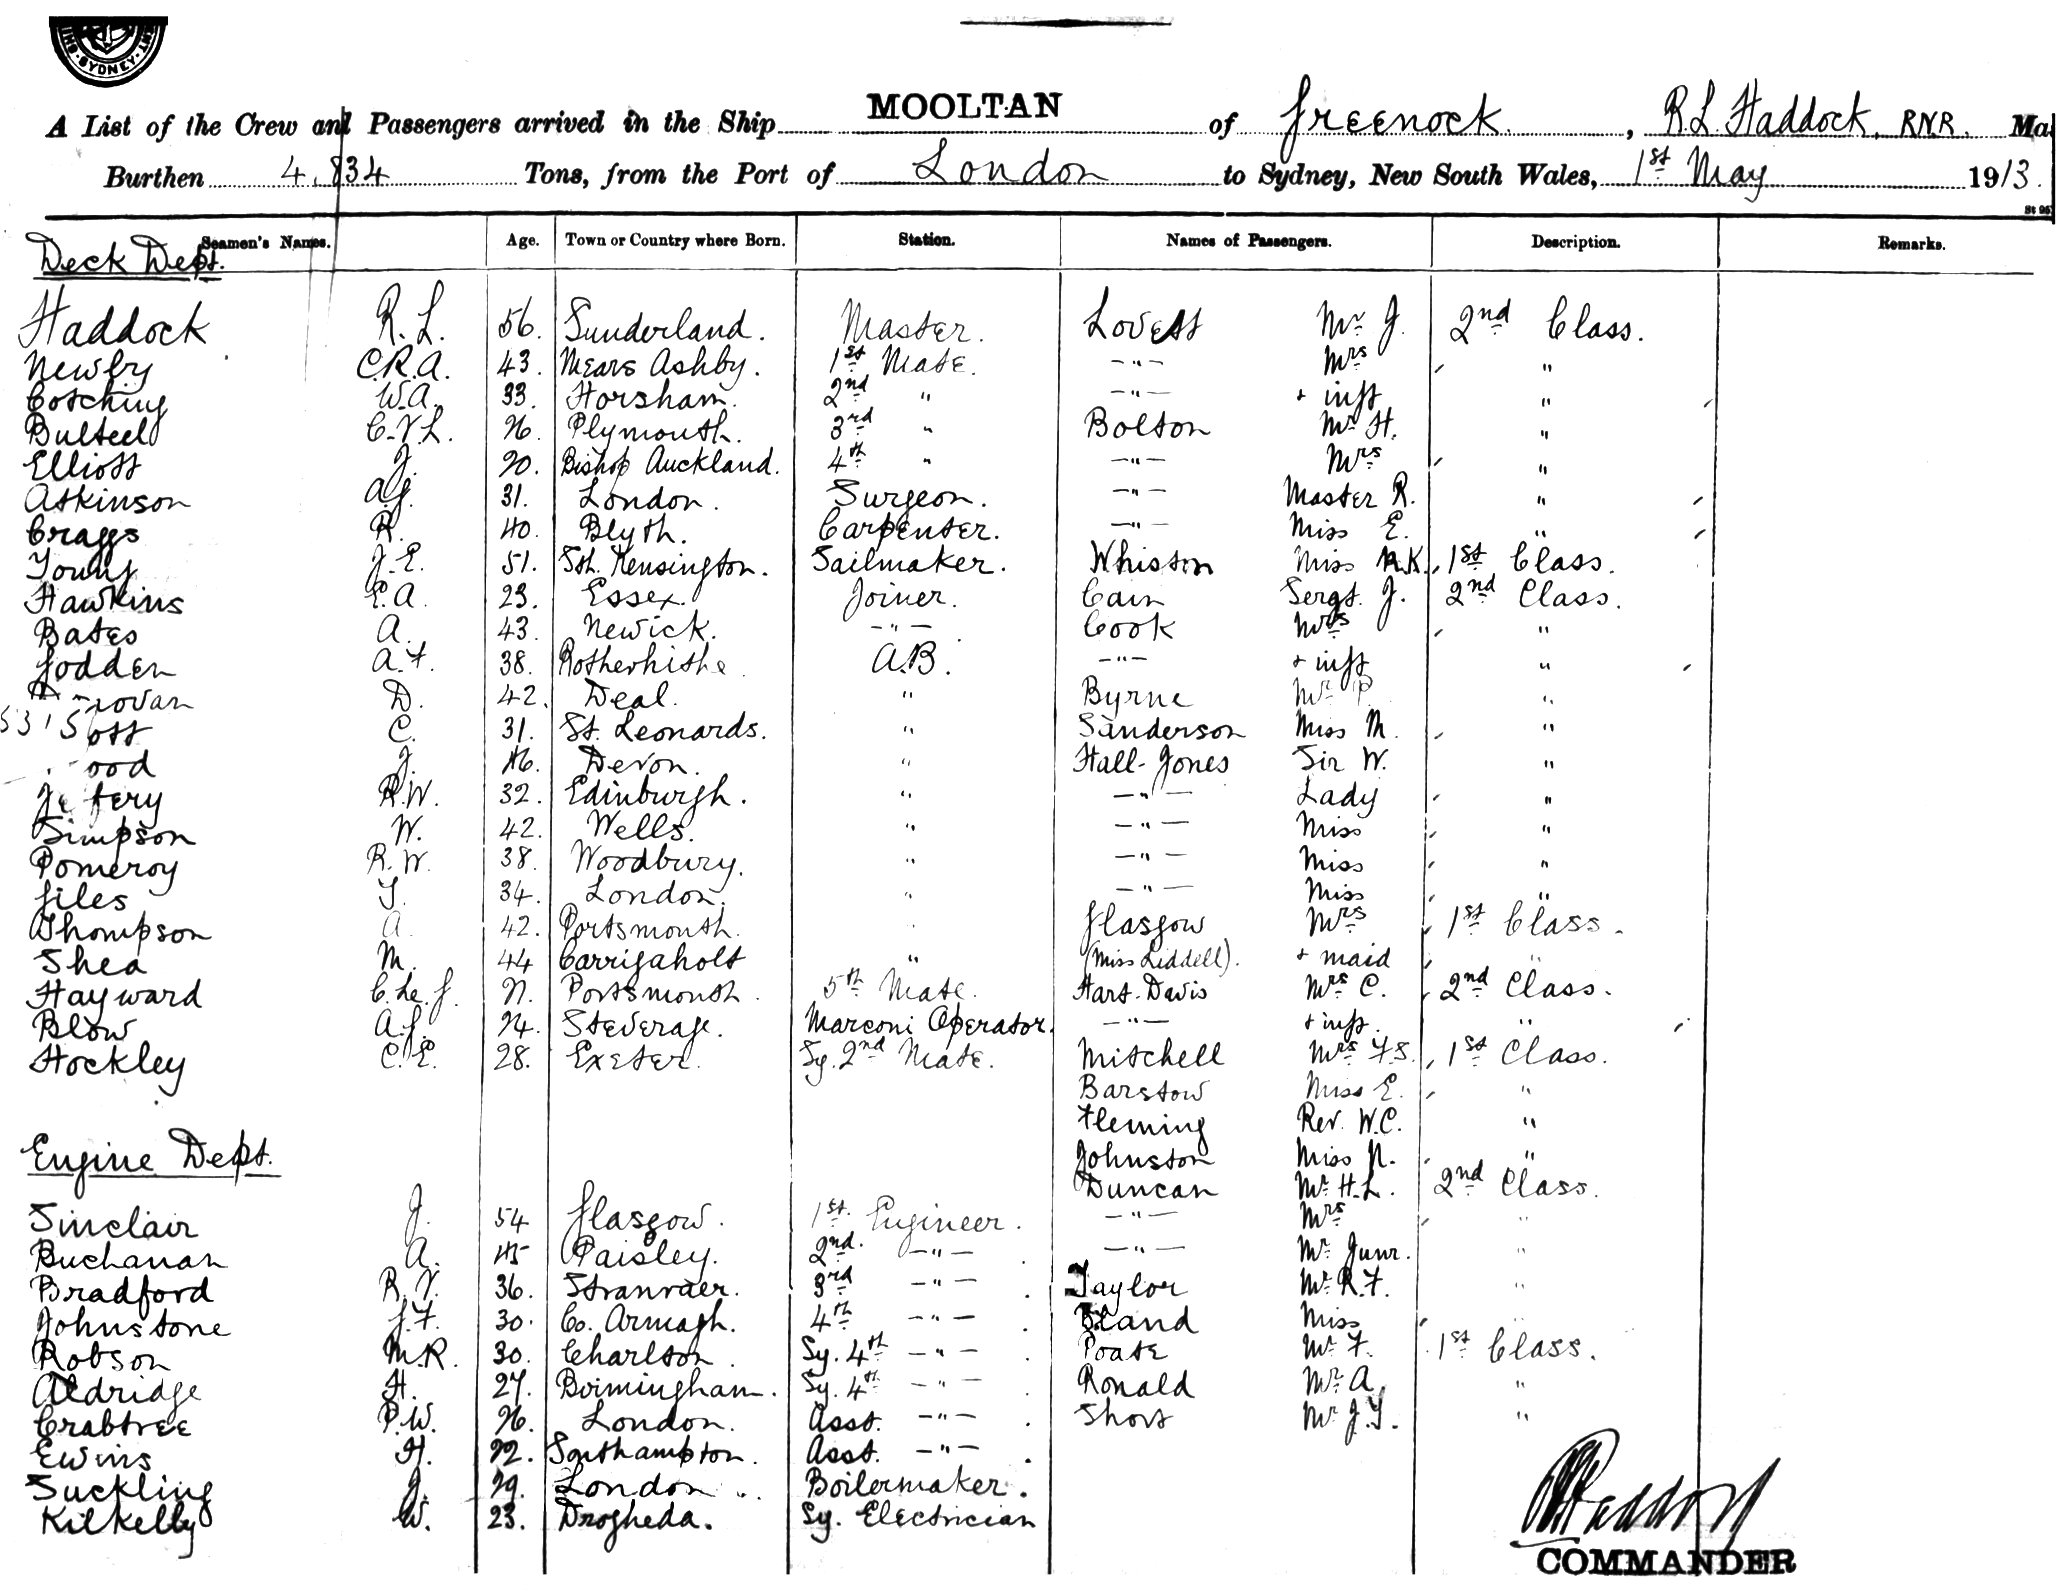 SYDNEY
A List of the Crew and Passengers arrived in the Ship MOOLTAN of Greenock, R.L. Haddock, RNR. Ma
Burthen 4,834 Tons, from the Port of London to Sydney, New South Wales, 1st May 1913.
Seamen's Names. Age. Town or Country where Born. Station. Names of Passengers. Description. Remarks.
Deck Dept.
Haddock R. L. 56. Sunderland. Master. Lovett Mr J. 2nd Class.
Newby C.R.A. 43. Mears Ashby. 1st Mate. —"— Mrs "
Cotching W.A. 33. Horsham. 2nd " —"— + inft "
Bulteel C.V.L. 26. Plymouth. 3rd " Bolton Mr H. "
Elliott J. 20. Bishop Auckland. 4th " —"— Mrs "
Atkinson A.J. 31. London. Surgeon. —"— Master R. "
Craggs R. 40. Blyth. Carpenter. —"— Miss E. "
Young J.E. 51. Sth. Kensington. Sailmaker. Whiston Miss K. 1st Class.
Hawkins E.A. 23. Essex. Joiner. Cain Sergt. J. 2nd Class.
Bates A. 43. Newick. —"— Cook Mrs "
Godden A.F. 38. Rotherhithe A.B. —"— + inft "
D. 42. Deal. " Byrne Mr P. "
C. 31. St. Leonards. " Sanderson Miss M. "
ood J. 46. Devon. " Hall-Jones Sir W. "
Jeffery R.W. 32. Edinburgh. " —"— Lady "
Simpson W. 42. Wells. " —"— Miss "
Pomeroy R.W. 38. Woodbury. " —"— Miss "
Giles T. 34. London. " —"— Miss "
Thompson A. 42. Portsmouth. " Glasgow Mrs 1st Class.
Shea M. 44 Carrigaholt " (Miss Liddell). + maid "
Hayward C. Le. G. 21. Portsmouth. 5th Mate. Hart-Davis Mrs C. 2nd Class.
Blow A.G. 24. Steverage. Marconi Operator. —"— + inft. "
Hockley C.E. 28. Exeter. Sy. 2nd Mate. Mitchell Mrs F.S. 1st Class.
Barstow Miss E. "
Fleming Rev. W.C. "
Engine Dept.
Johnston Miss N. "
Duncan Mr H.L. 2nd Class.
Sinclair J. 54 Glasgow. 1st Engineer. —"— Mrs "
Buchanan A. 45 Paisley. 2nd. —"— —"— Mr Junr. "
Bradford R.V. 36. Stranraer. 3rd —"— Taylor Mr R.F. "
Johnstone J.F. 30. Co. Armagh. 4th —"— Bland Miss "
Robson M.R. 30. Charlton. Sy. 4th —"— Poate Mr F. 1st Class.
Aldridge H. 27. Birmingham. Sy. 4th —"— Ronald Mr A. "
Crabtree P.W. 26. London. Asst. —"— Short Mr J.Y. "
Ewins H. 22. Southampton. Asst. —"—
Suckling J. 29. London. Boilermaker.
Kilkelly W. 23. Drogheda. Sy. Electrician
Haddock
COMMANDER